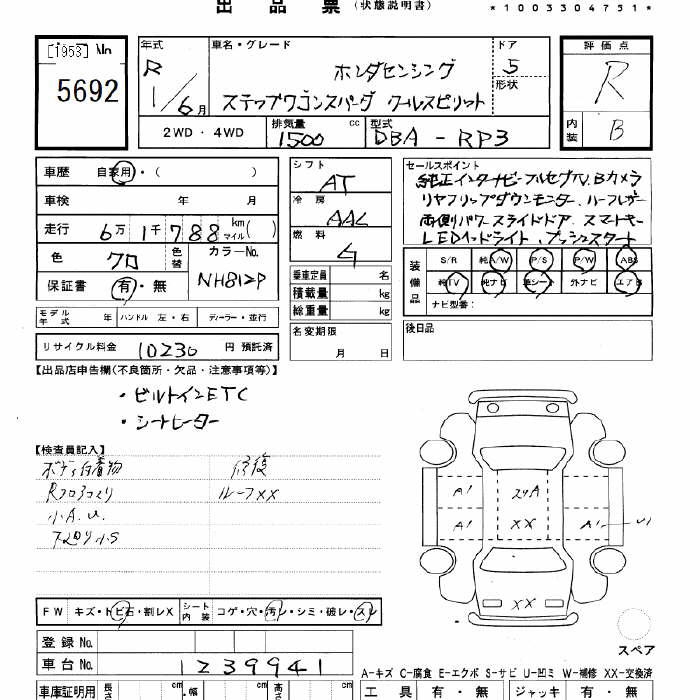 出品票 (状態説明書)
*1003304751*
[1953] No.
5692
年式 車名・グレード ドア 評価点
R ホンダセンシング 5 R
1/6月 ステップワゴンスパーダ クールスピリット 形状
2WD・4WD 排気量 1500 cc 型式 DBA-RP3 内装 B
車歴 自家用・( ) シフト AT セールスポイント
純正インターナビ フルセグTV、Bカメラ
車検 年 月 冷房 AAC リヤフリップダウンモニター、ハーフレザー
走行 6万1千788 km マイル( ) 両側パワースライドドア、スマートキー
燃料 G LEDヘッドライト、プッシュスタート
色 クロ 色替 カラーNo. NH812P
装備品 S/R 純A/W P/S P/W ABS
保証書 有・無 乗車定員 名
純TV 純ナビ 革シート 外ナビ エアB
積載量 kg ナビ型番:
モデル年式 年 ハンドル 左・右 ディーラー・並行 総重量 kg
後日品
リサイクル料金 10230 円 預託済 名変期限 月 日
【出品店申告欄(不良箇所・欠品・注意事項等)】
・ビルトインETC
・シートヒーター
【検査員記入】
修復
ルーフXX
小A.U.
A1 A
A1 XX A1 U1
XX
FW キズ・トビ石・割レX シート内装 コゲ・穴・汚レ・シミ・破レ・スレ
スペア
登録No.
車台No. 1239941
A-キズ C-腐食 E-エクボ S-サビ U-凹ミ W-補修 XX-交換済
車庫証明用 長さ cm ・幅 cm 高さ cm 工具 有・無 ジャッキ 有・無